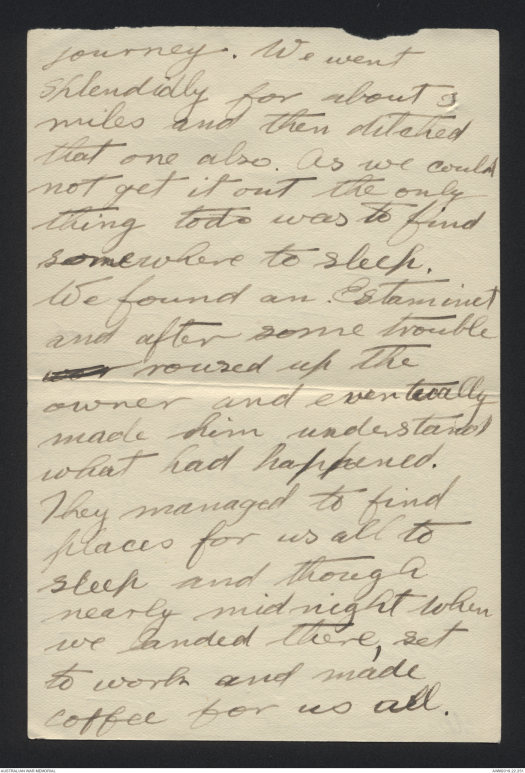 journey. We went
splendidly for about 3
miles and then ditched
that one also. As we could
not get it out the only
thing todo was to find
somewhere to sleep.
We found an Estaminet
and after some trouble
roused up the
owner and eventually
made him understand
what had happened.
They managed to find
places for us all to
sleep and though
nearly midnight when
we landed there, set
to work and made
coffee for us all.
AUSTRALIAN WAR MEMORIAL